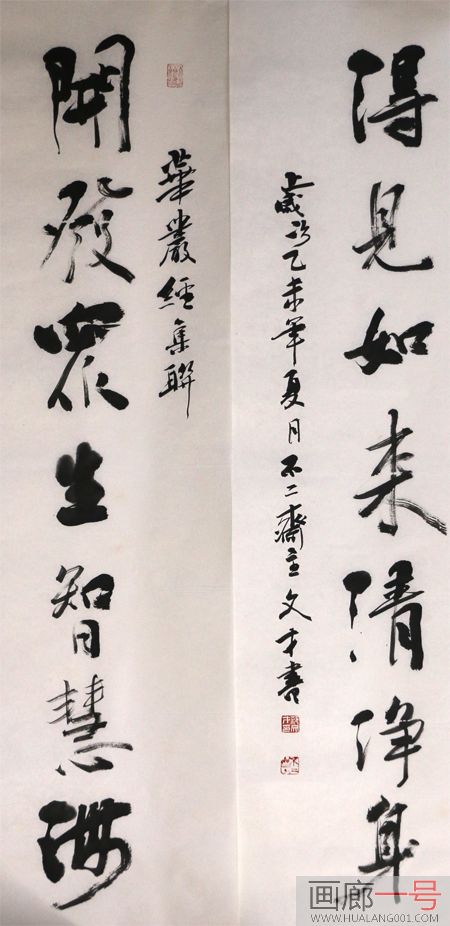 得見如来清淨身
歲次乙未年夏月不二齋主文才書
華嚴經集聯
開發眾生智慧海
画廊一号
WWW.HUALANG001.COM